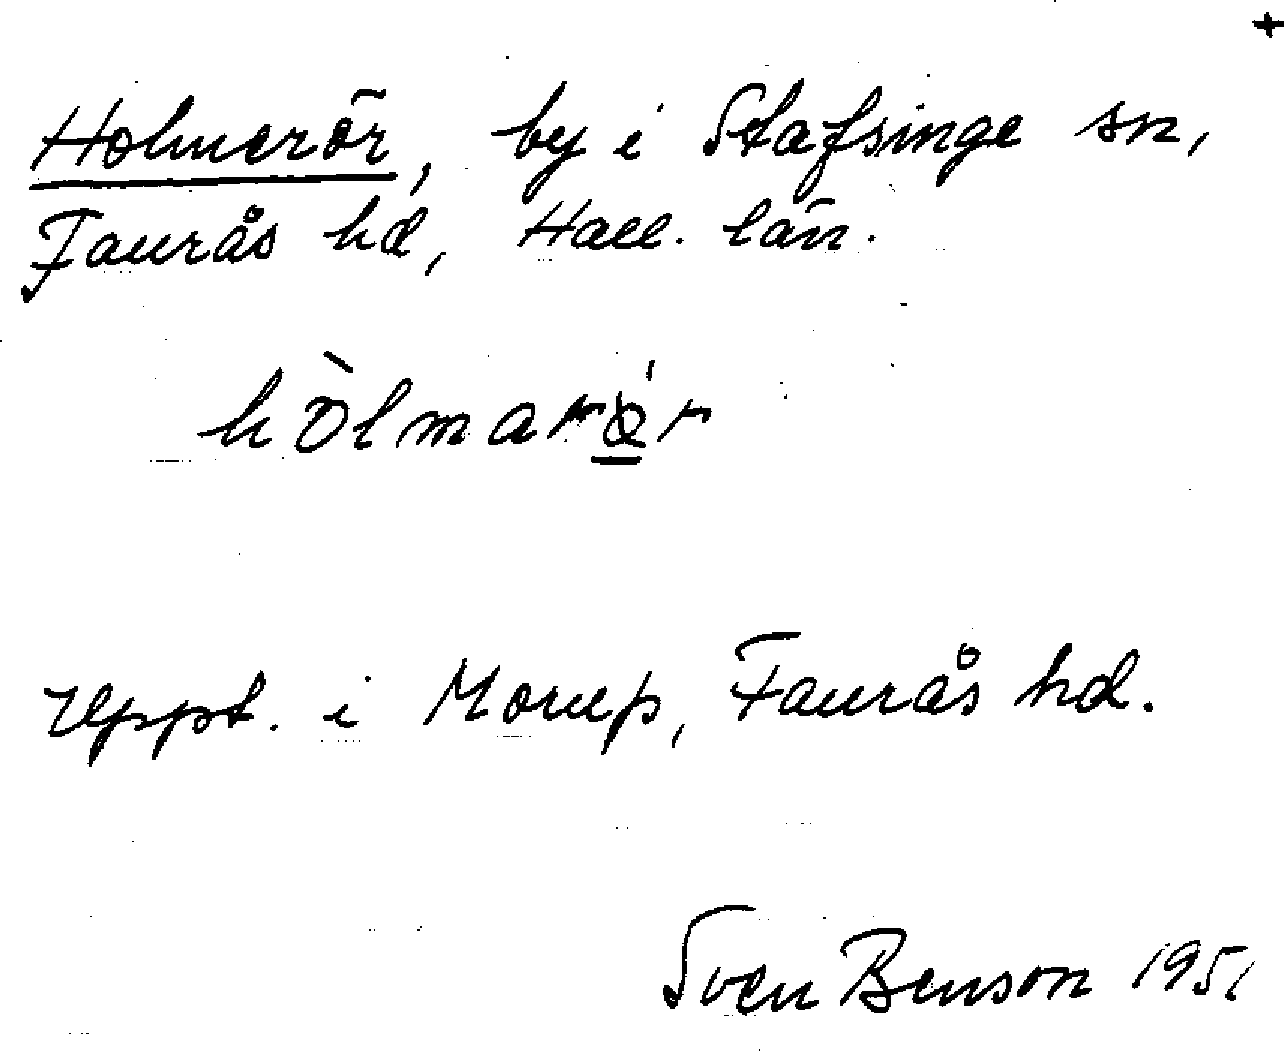 +
Holmerör, by i Stafsinge sn,
Faurås hd, Hall. län.
hòlmarǿr
Uppt. i Morup, Faurås hd.
Sven Benson 1951